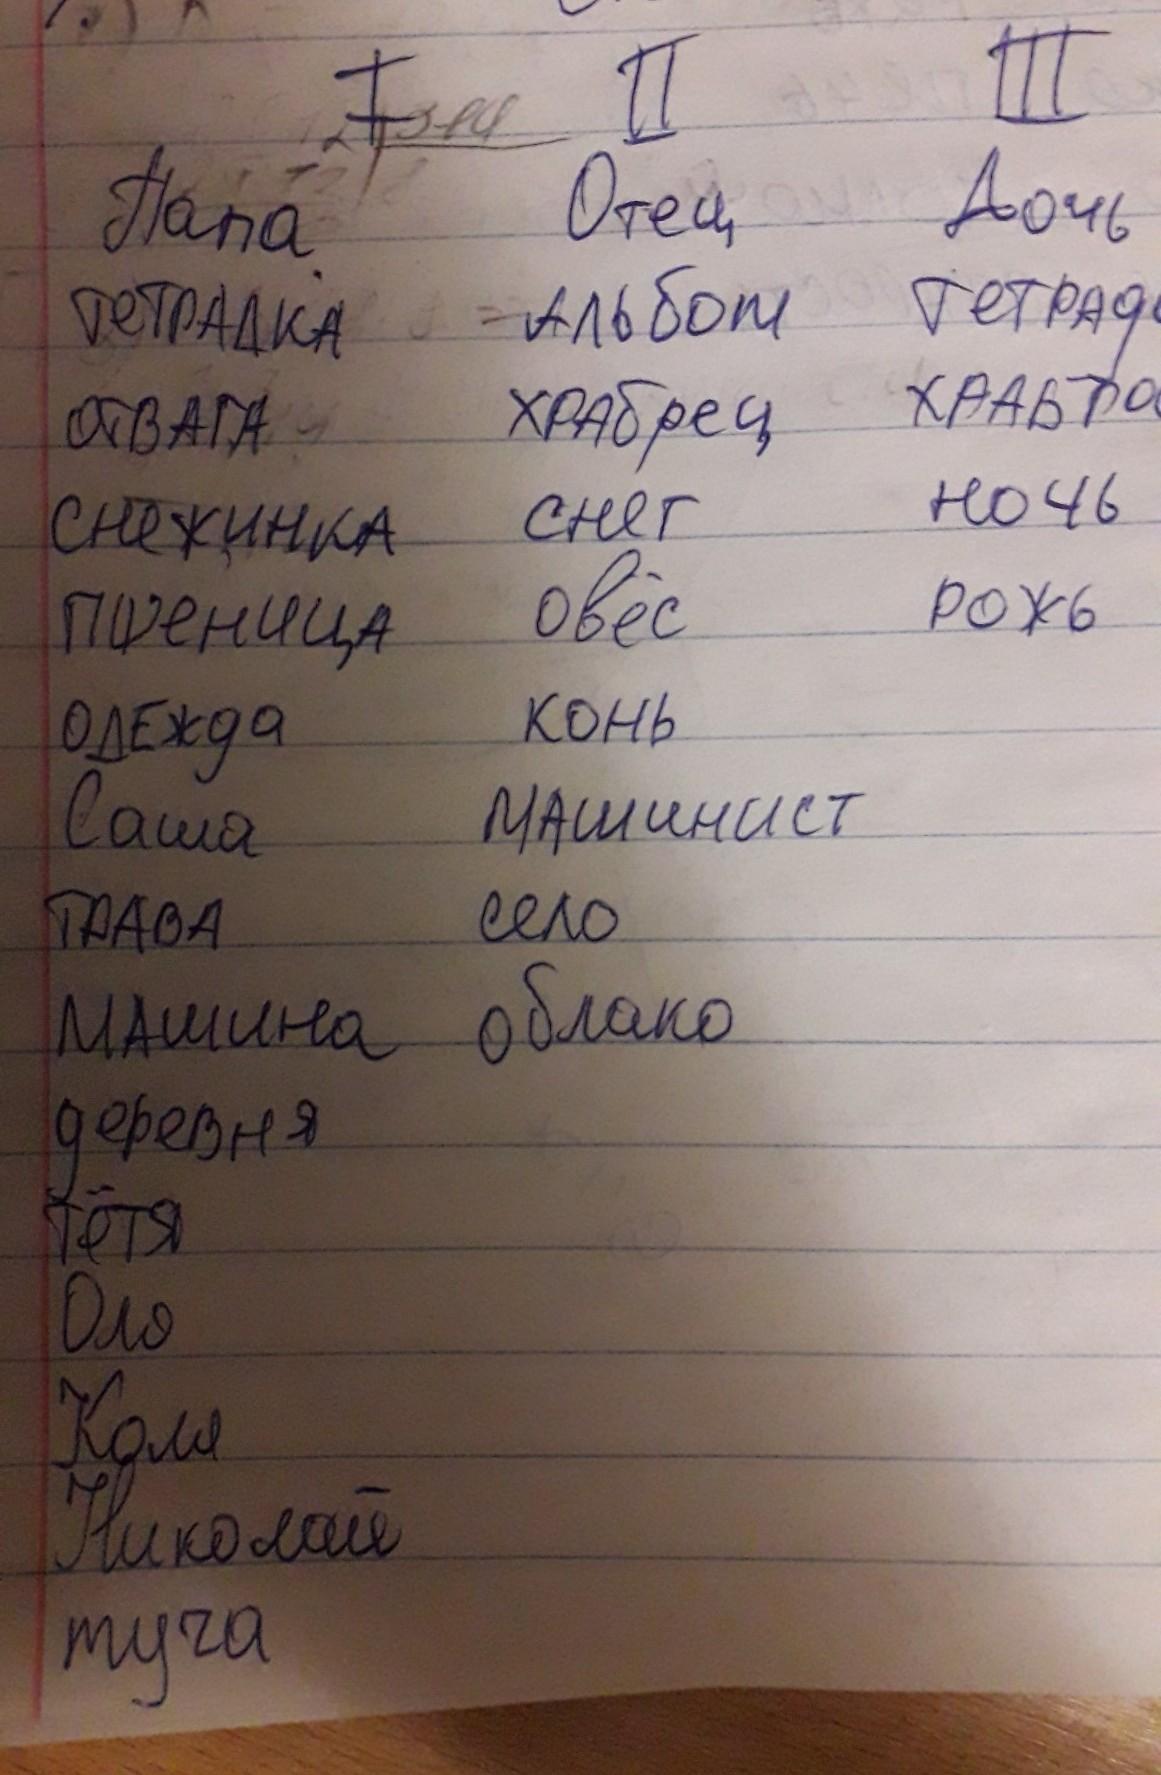 I II III
Папа Отец Дочь
тетрадка альбом
отвага храбрец
снежинка снег ночь
пшеница овёс рожь
одежда конь
Саша машинист
трава село
машина облако
деревня
тётя
Оля
Коля
Николай
туча